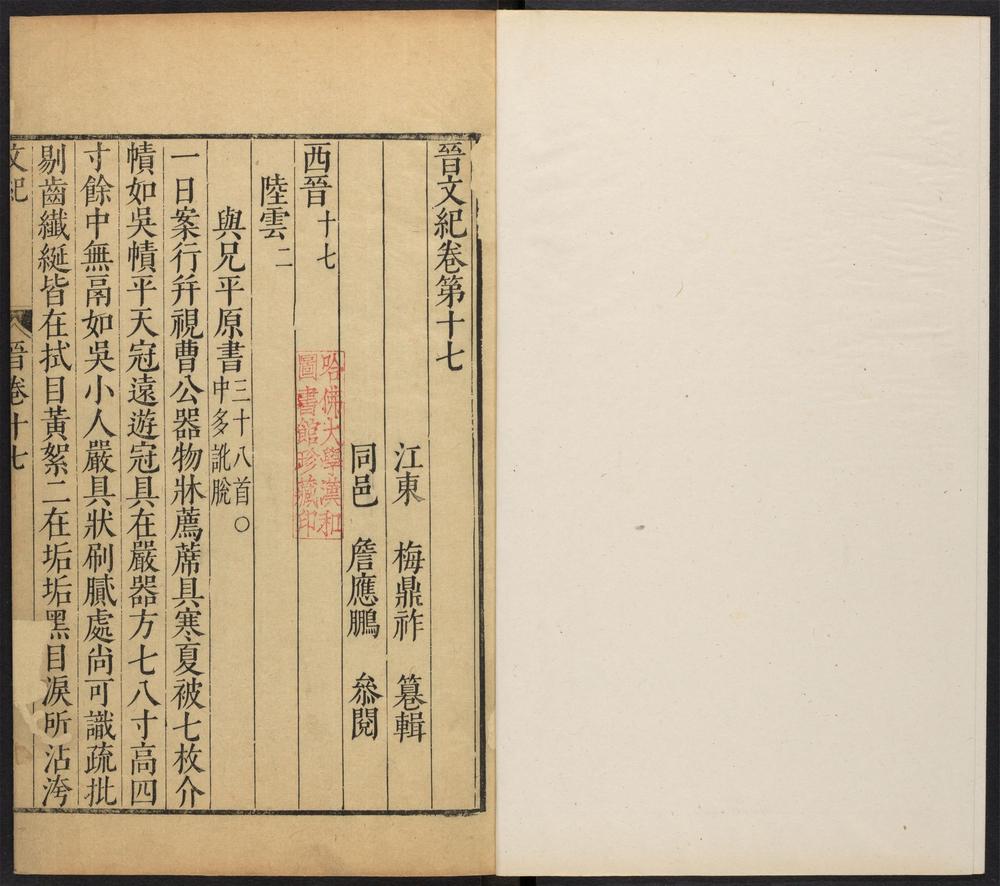 晉文紀卷第十七
江東 梅鼎祚 纂輯
同邑 詹應鵬 叅閱
西晉十七
陸雲二
與兄平原書三十八首○中多訛脫
一日案行幷視曹公器物牀薦蓆具寒夏被七枚介
幘如吳幘平天冠遠遊冠具在嚴器方七八寸高四
寸餘中無鬲如吳小人嚴具狀刷膩處尚可識疏批
剔齒纖綖皆在拭目黃絮二在垢垢黑目淚所沾洿
文紀 晉卷十七
哈佛大學漢和
圖書館珍藏印